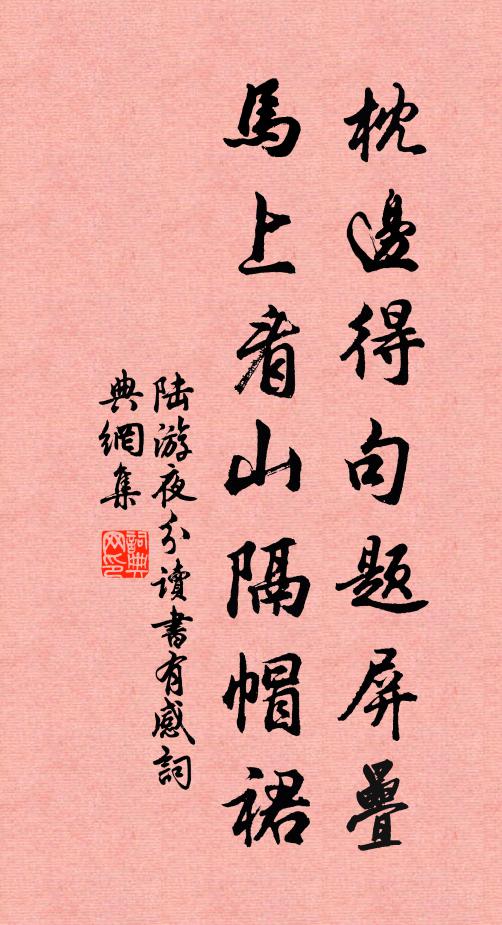 枕邊得句題屏疊
馬上看山隔帽裙
陆游夜分讀書有感詞
典網集
詞典網印